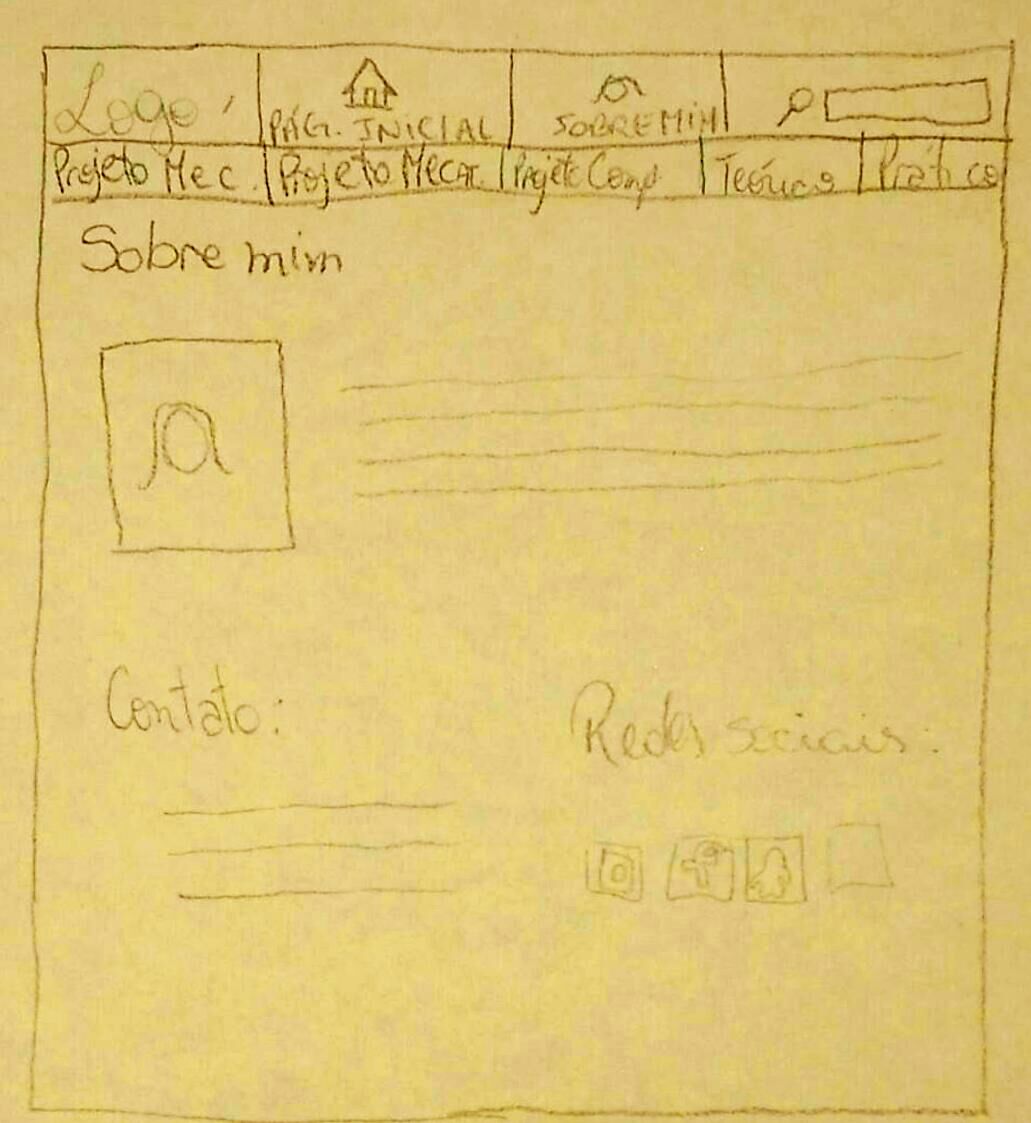 Logo
PÁG. INICIAL
SOBRE MIM
Projeto Mec.
Projeto Mecat.
Projeto Comp.
Teórico
Prático
Sobre mim
Contato:
Redes sociais: